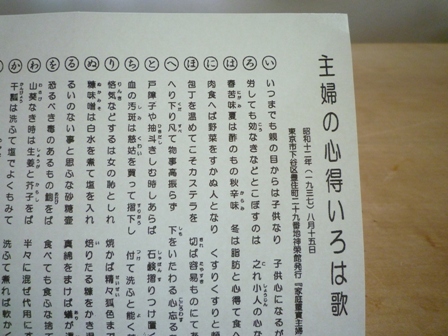 主婦の心得いろは歌
昭和十二年（一九三七）八月十五日
東京市下谷区豊住町二十九番地神栄館発行『家庭重宝主婦
い いつまでも親の目からは子供なり 子供心になるが
ろ 労しても効なきなどとこぼすのは 之れ小人の心か
は 春苦味夏は酢のもの秋辛味 冬は脂肪と心得て食へ
に 肉食へば野菜をすかぬ人となり くすりくすりと
ほ 包丁を温めてこそカステラを 切ば容易ものにてあ
へ へり下り凡て物事高振らず 下をいたわる心忘る
と 戸障子や抽斗きしむ時しあらば 石鹸摺りつけ置く
ち 血の汚斑は慈姑を買って摺下し 付て洗ふと能く
り 悋気などするは女の恥としれ 焼かば精々狐色ま
ぬ 糠味噌は白水を煮て塩を入れ 焙りたる糠をかき混
る るいのない事と思ふな砂糖壷 真綿をまけば蟻が
を 恐るべき毒のあるもの鯛をば 食べても食ふな捨
わ 山葵なき時は生姜と芥子をば 半々に混ぜ代用に
か 干瓢は洗ふて塩でよくもみて 洗ふて煮れば軟か